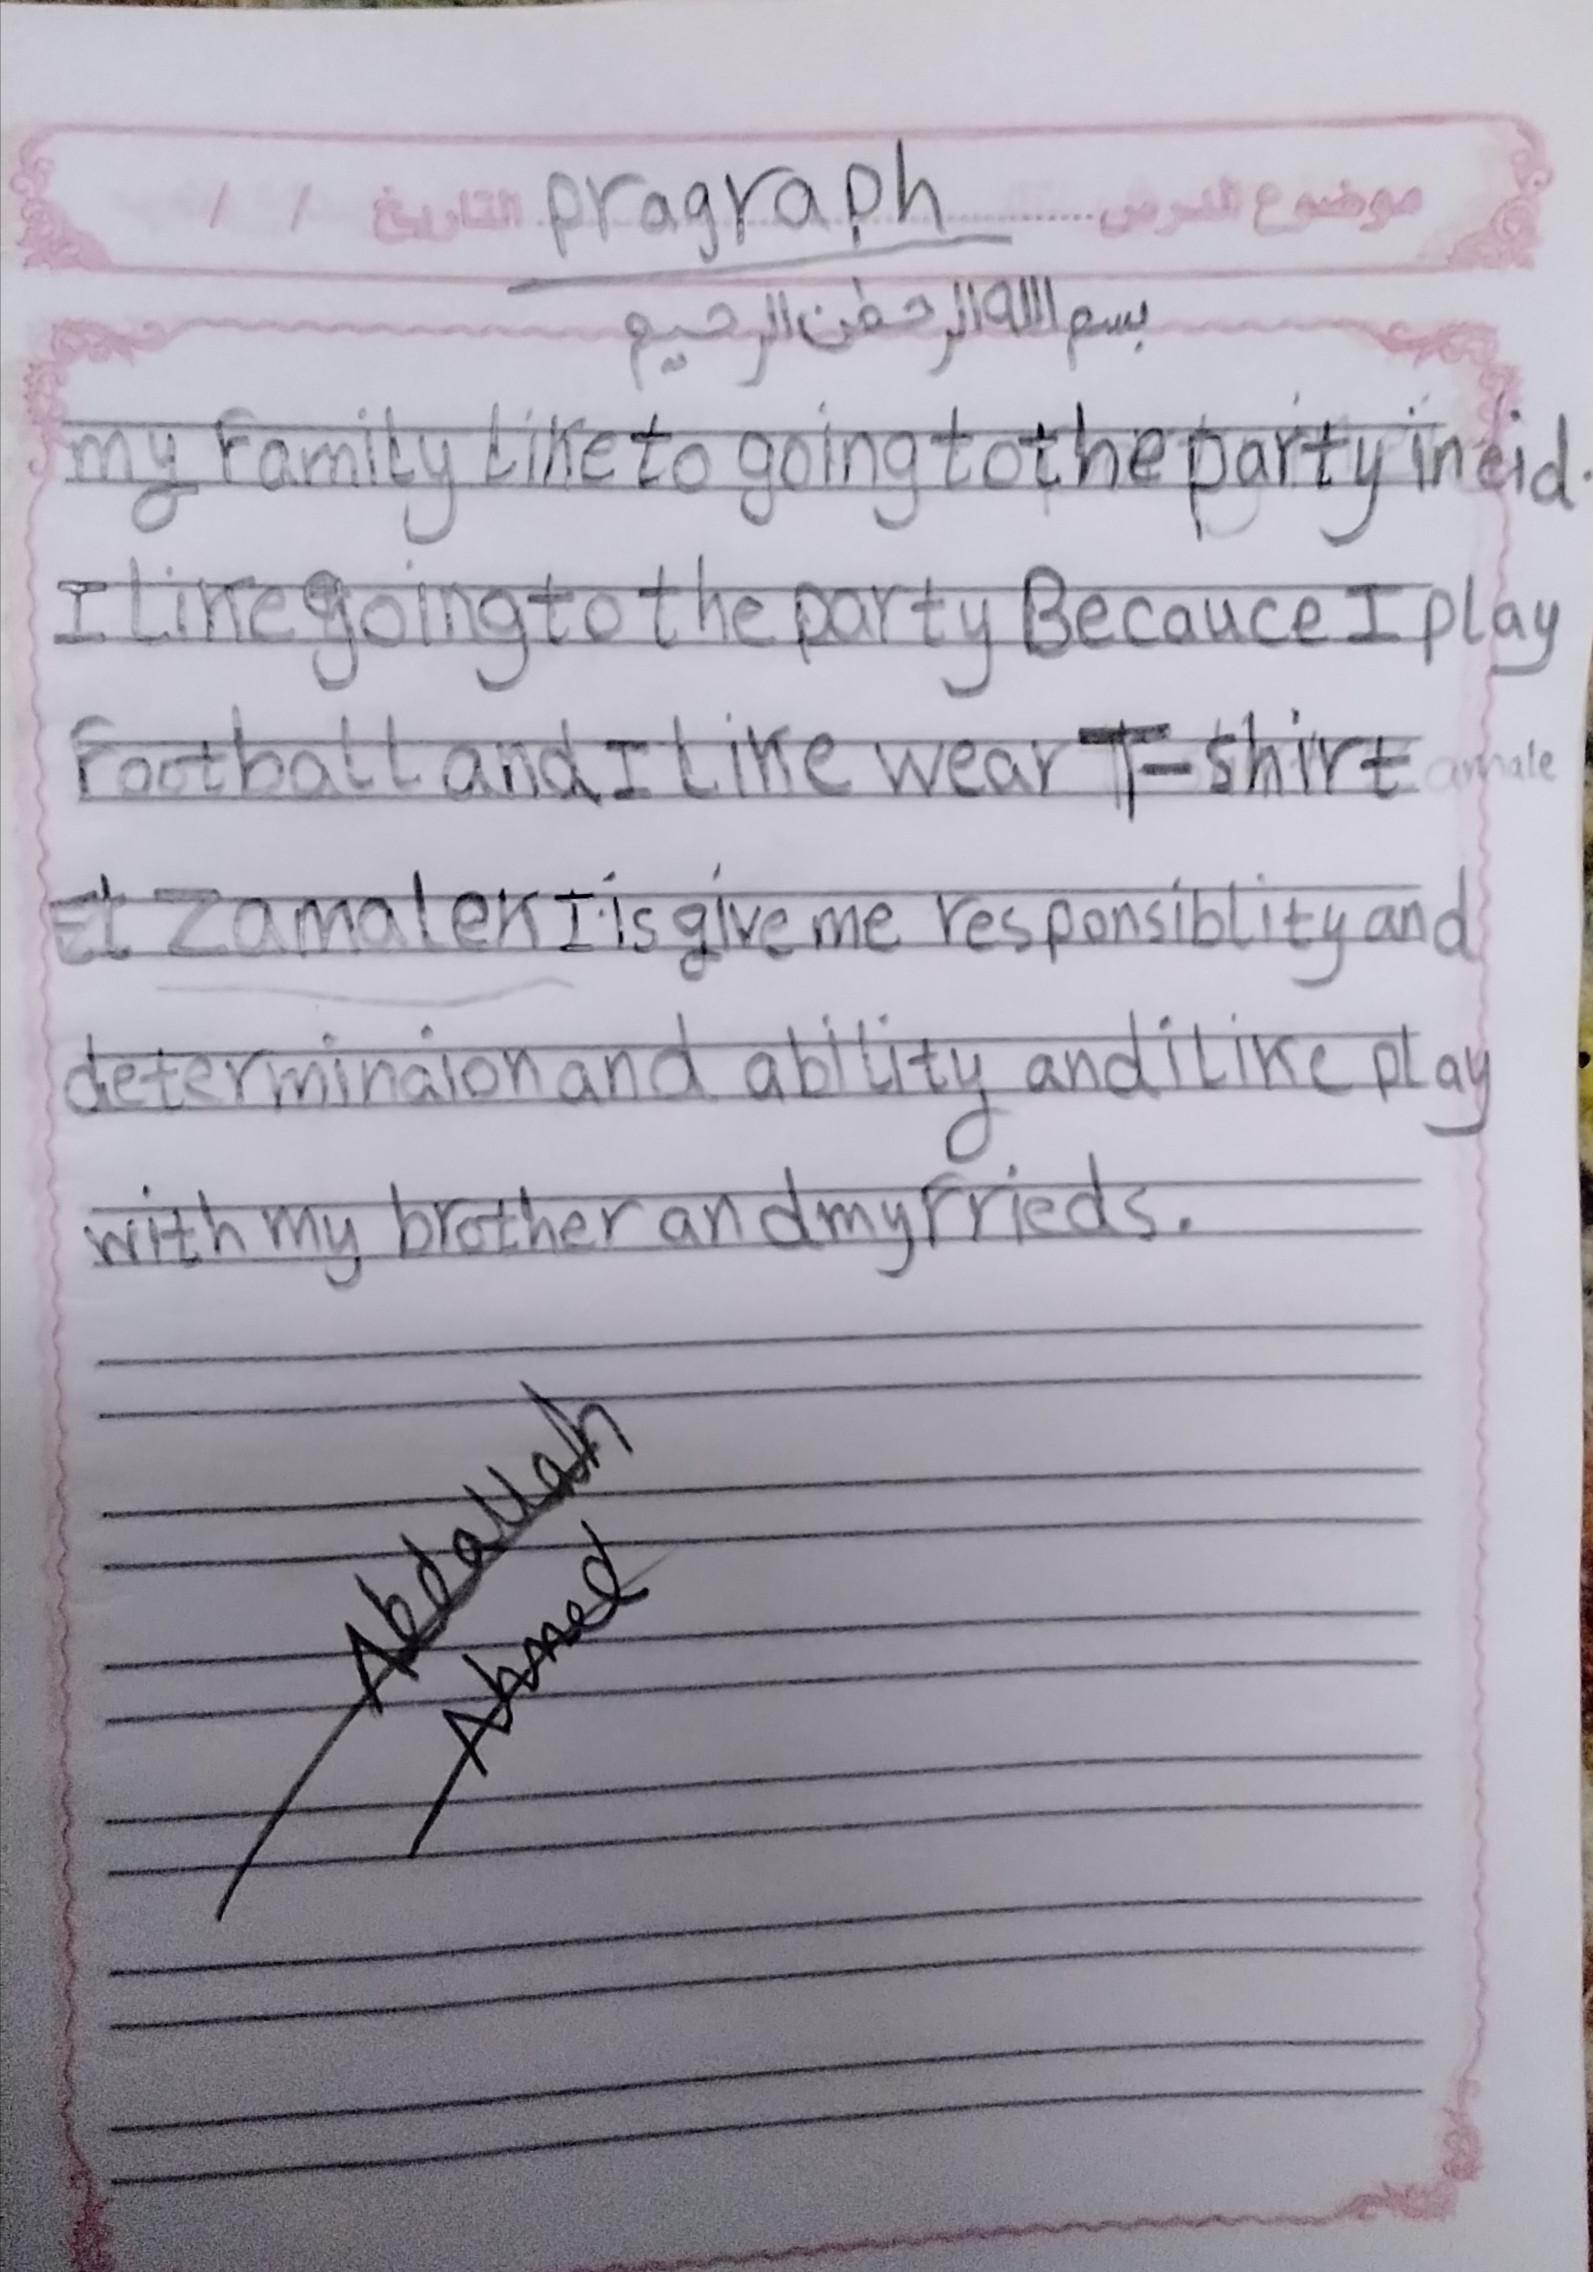 موضوع الدرس التاريخ / /
pragraph
بسم الله الرحمن الرحيم
my Family Like to going to the party in eid.
I Like going to the party Becauce I play
Football and I Like wear T-shirt
El Zamalek I is give me responsiblity and
determinaion and ability and i Like play
with my brother and my Frieds.
Abdallah
Ahmed